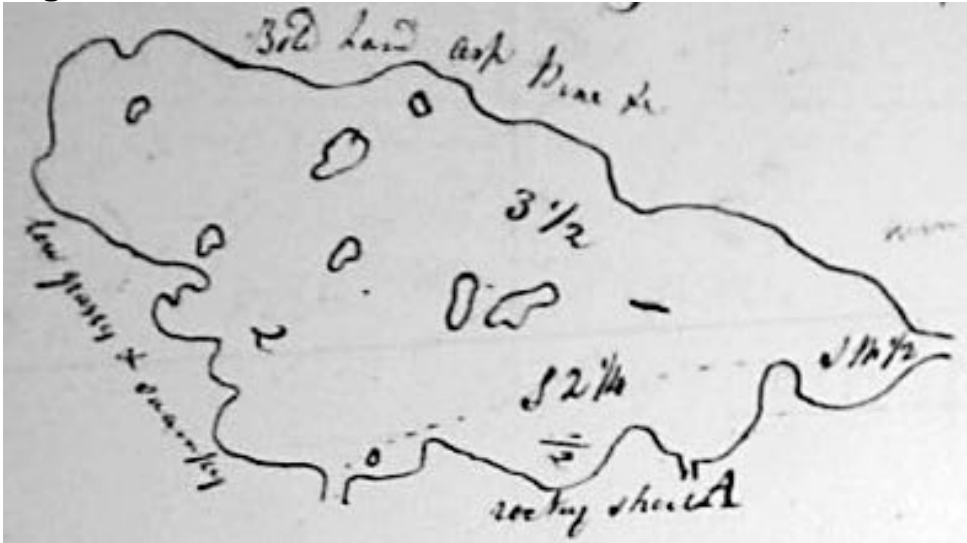 Bold Land asp Pine &c
3 1/2
low grassy & swampy
2
S 2 1/4
S 1 1/2
rocky shore A